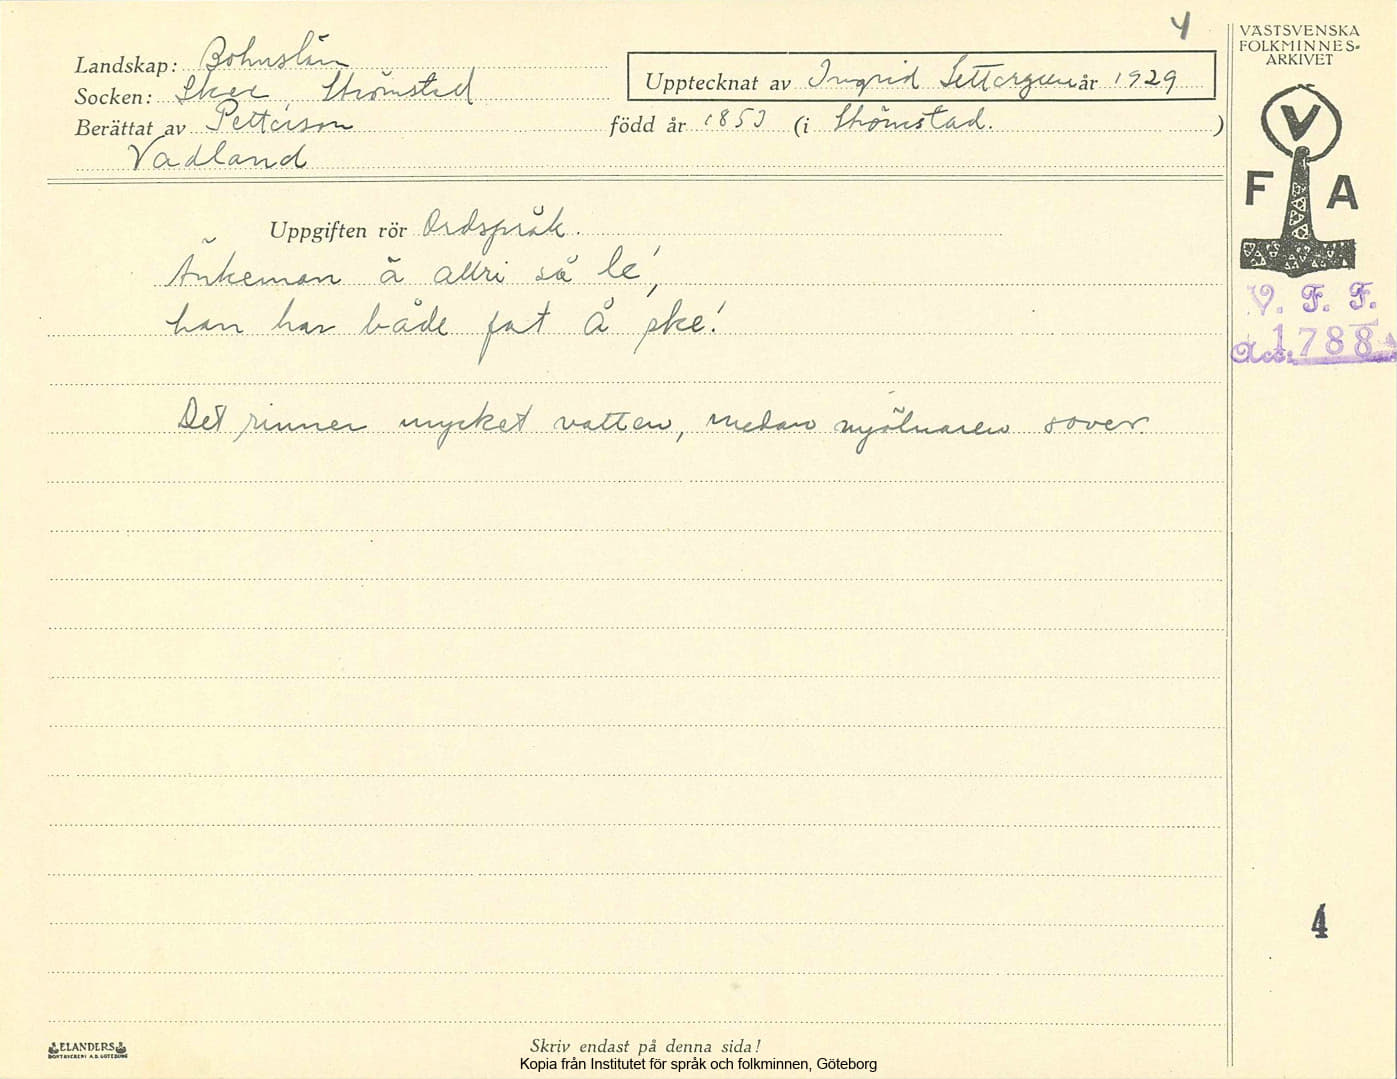 4
VÄSTSVENSKA
FOLKMINNES-
ARKIVET
Landskap: Bohuslän
Upptecknat av Ingrid Settergren år 1929
Socken: Skee, Strömstad
Berättat av Petterson född år 1853 (i Strömstad. )
Vadland
V
F A
Uppgiften rör Ordspråk.
Änkeman ä allri så le',
han har både fat å ske!
V. F. F.
Acc. 1788
Det rinner mycket vatten, medan mjölnaren sover.
4
ELANDERS
BOKTRYCKERI A.B. GÖTEBORG
Skriv endast på denna sida!
Kopia från Institutet för språk och folkminnen, Göteborg